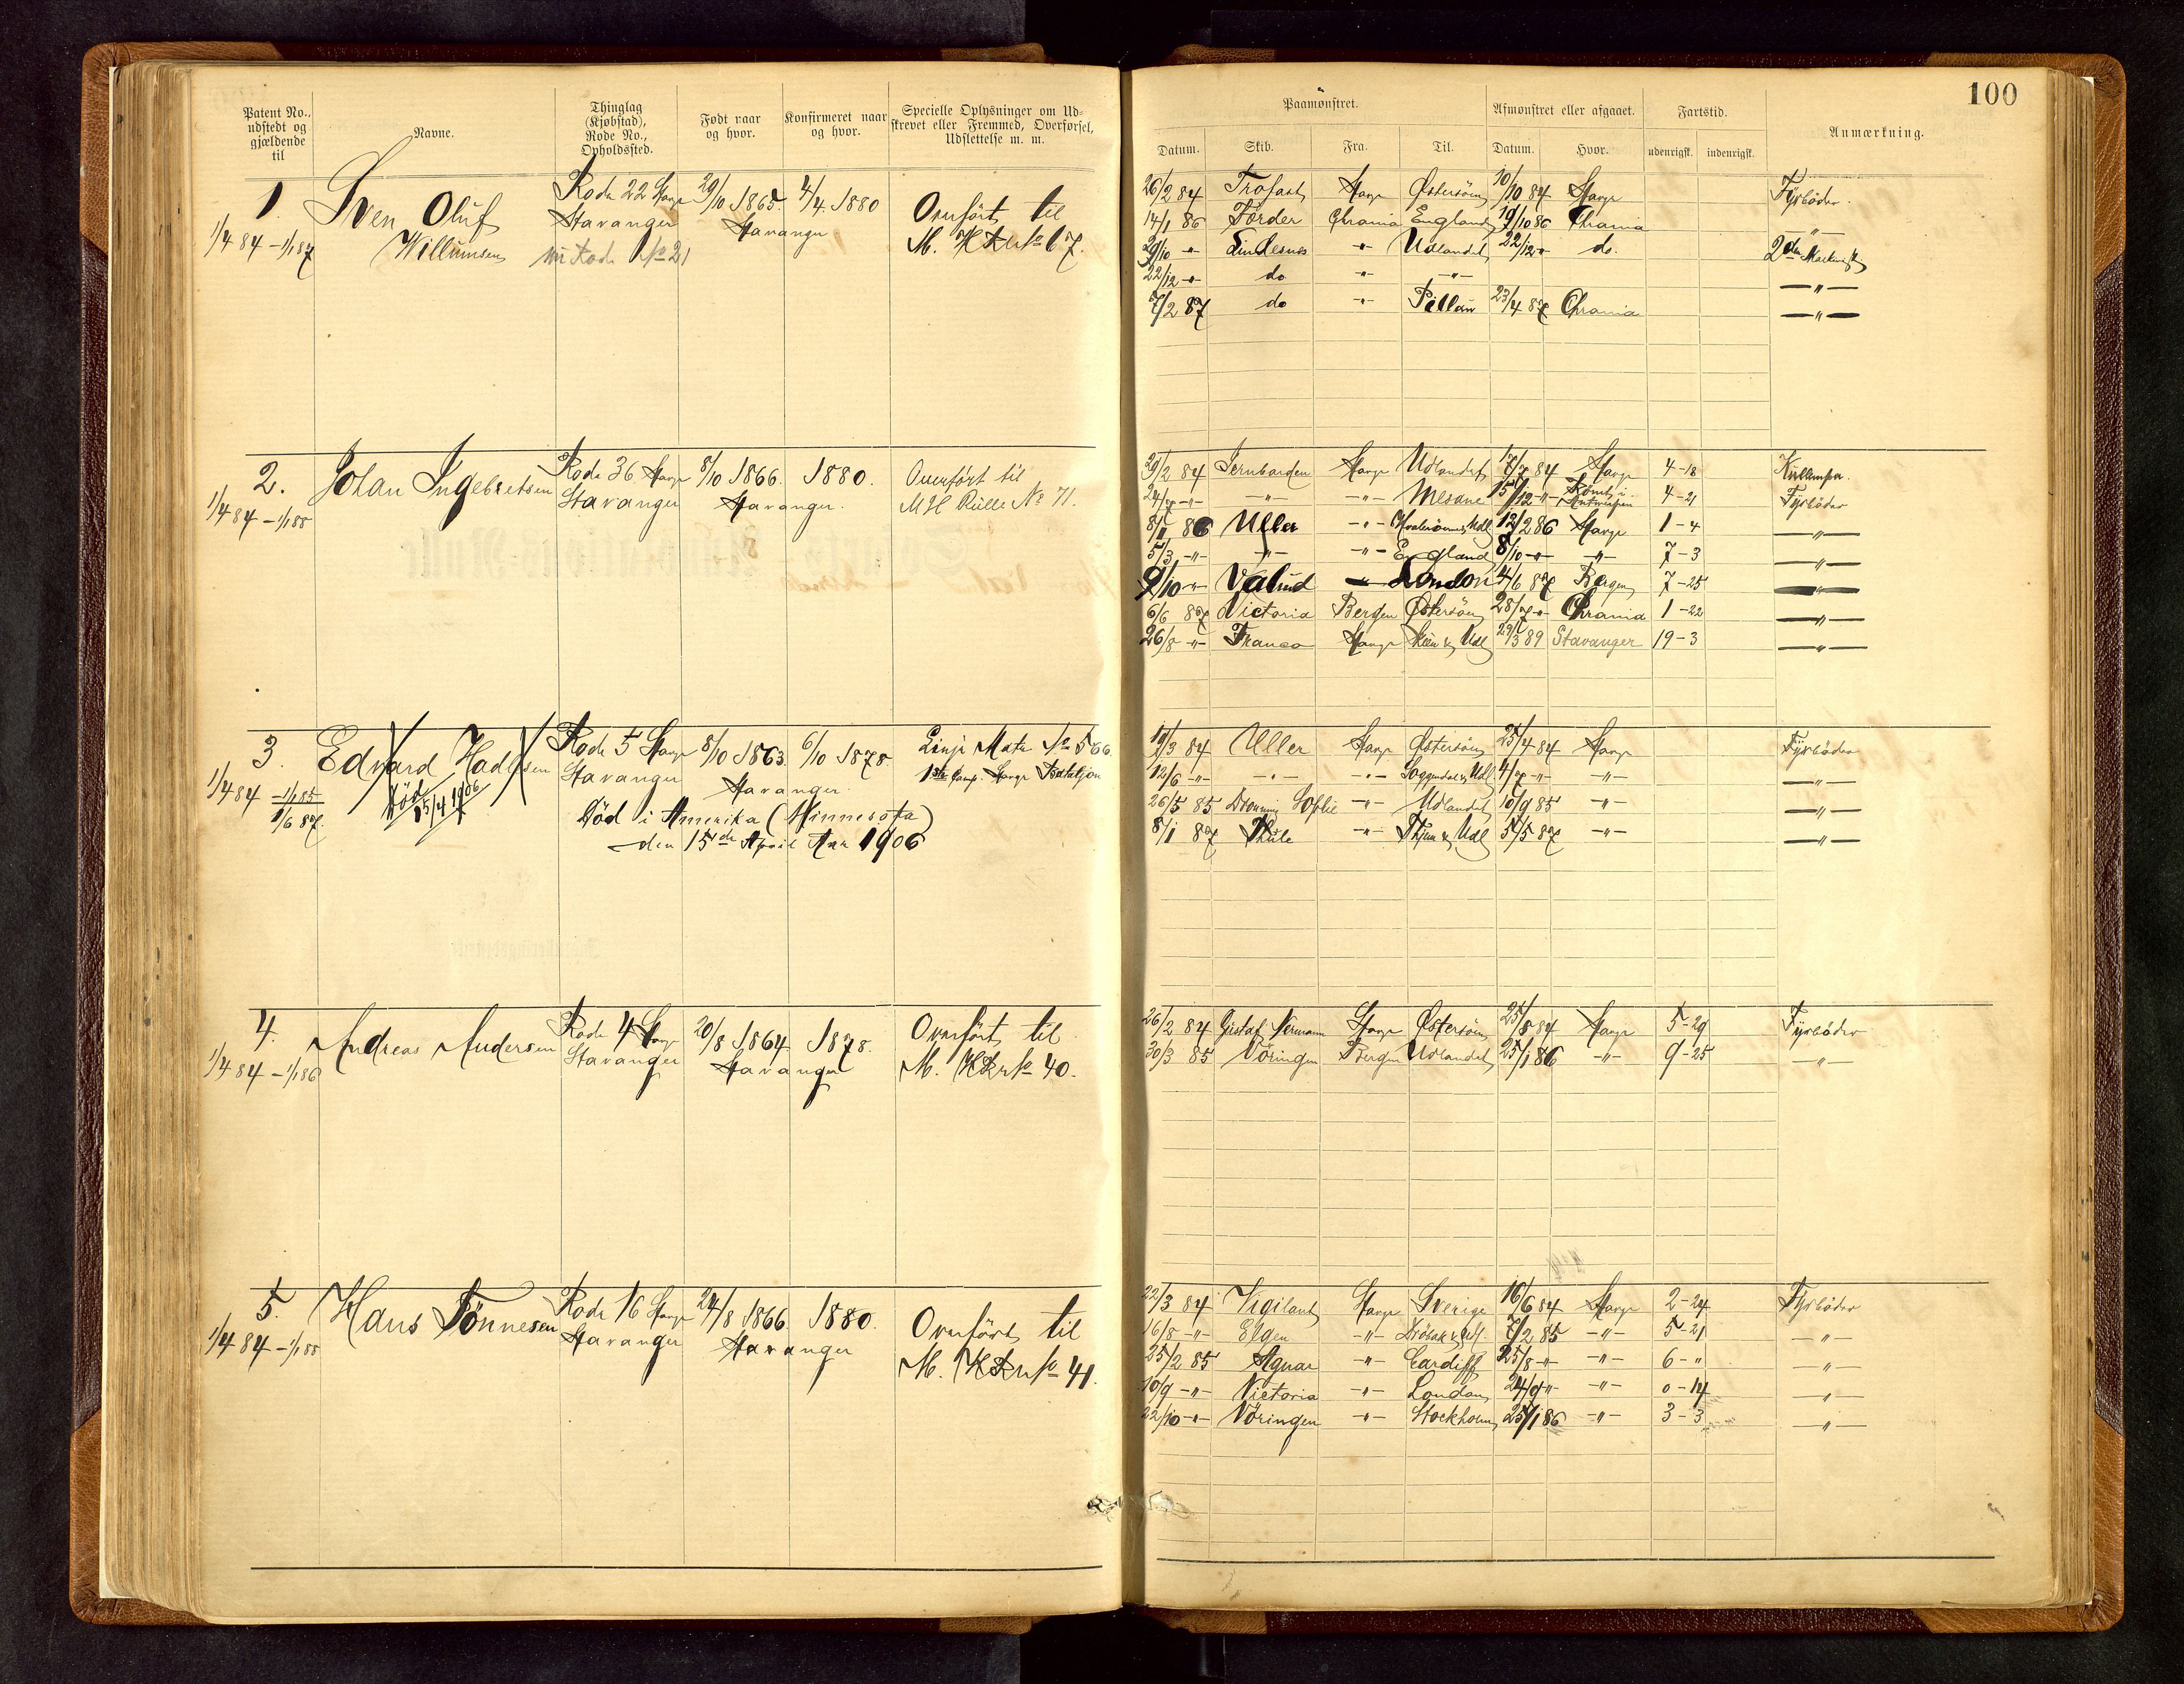 100
Patent No., udstedt og gjældende til
Navne.
Thinglag (Kjøbstad), Rode No., Opholdssted.
Født naar og hvor.
Konfirmeret naar og hvor.
Specielle Oplysninger om Udskrevet eller Fremmed, Overførsel, Udslettelse m. m.
Paamønstret.
Afmønstret eller afgaaet.
Fartstid.
Anmærkning.
Datum. Skib. Fra. Til. Datum. Hvor. udenrigsk. indenrigsk.
1. Sven Oluf Rode 22 Stavgr 29/10 1865. 4/4 1880 Overført til
1/4 84 – 1/1 87 Willumsen Stavanger Stavanger M. H. R. No 67.
Rode No 21
26/2 84 Trofast Stavgr Østersøen 10/10 84 Stavgr Fyrbøder.
14/1 86 Förder Chrania England 19/10 86 Chrania – " –
29/10 – " – Lindesnes – " – Udlandet 22/12 – " – do. 2den Maskinist
22/12 – " – do – " – – " – – " –
7/2 87 do – " – Pillau 23/4 87 Chrania – " –
2. Johan Ingebretsen Rode 36 Stavgr 8/10 1866. 1880. Overført til
1/4 84 – 1/1 88 Stavanger Stavanger. M H Rulle No 71.
29/2 84 Jernbarden Stavgr Udlandet 17/7 84 Stavgr 4–18
24/7 – " – – " – – " – 15/12 – " – Antwerpen 4–21 Fyrbøder
8/1 86 Uller – " – 12/2 86 Stavgr 1–4 – " –
5/3 – " – – " – – " – England 8/10 – " – – " – 7–3 – " –
9/10 – " – Valuud – " – London 4/6 87 Bergen 7–25 – " –
6/6 87 Victoria Bergen Østersøen 28/7 – " – Chrania 1–22 – " –
26/8 – " – Franco Stavgr Skien & Udl 29/3 89 Stavanger 19–3 – " –
3. Edvard Hadlesen Rode 5 Stavgr 8/10 1863. 6/10 1878. Linje Matr No 566
1/4 84 – 1/1 85 Død Stavanger Stavanger. 1ste Komp. Stavgr Bataljon
1/6 87. 15/4 1906 Død i Amerika (Minnesota)
den 15de April Aar 1906
19/3 84 Uller Stavgr Østersøen 25/4 84 Stavgr Fyrbøder
12/6 – " – – " – – " – Soggendal & Udl. 4/7 – " – – " – – " –
26/5 85 Dronning Sophie – " – Udlandet 10/9 85 – " – – " –
8/1 87 Thule – " – Udl 5/5 87 – " – – " –
4. Andreas Andersen Rode 4 Stavgr 20/8 1864. 1878. Overført til
1/4 84 – 1/1 86 Stavanger Stavanger M. H. R. No 40.
26/2 84 Gustaf Vermann Stavgr Østersøen 25/8 84 Stavgr 5–29 Fyrbøder
30/3 85 Vöringen Bergen Udlandet 25/1 86 – " – 9–25 – " –
5. Hans Tönnesen Rode 16 Stavgr 24/8 1866. 1880. Overført til
1/4 84 – 1/1 88 Stavanger Stavanger M. H. R. No 41.
22/3 84 Vigilant Stavgr Sverige 16/6 84 Stavgr 2–24 Fyrbøder
16/8 – " – Elgen – " – Drøbak & Udl. 7/2 85 – " – 5–21 – " –
25/2 85 Agnar – " – Cardiff 25/8 – " – – " – 6–" – " –
10/9 – " – Victoria – " – London 24/9 – " – – " – 0–14 – " –
22/10 – " – Vöringen – " – Stockholm 25/1 86 – " – 3–3 – " –